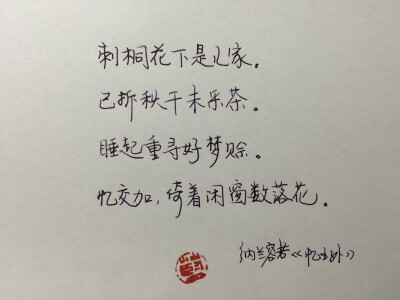 刺桐花下是儿家。
已拆秋千未采茶。
睡起重寻好梦赊。
忆交加，倚着闲窗数落花。
纳兰容若《忆王孙》